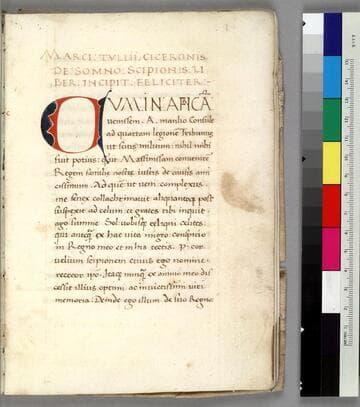 MARCI. TVLLII. CICERONIS.
DE SOMNO. SCIPIONIS. LI
BER. INCIPIT. FELICITER.
QVM IN AFRICĀ
venissem. A. manlio Consule
ad quartam legionē Tribunus
ut scitis militum: nihil mihi
fuit potius: quā Massinissam convenire
Regem familie nostre iustis de causis ami
cissimum. Ad quē ut veni complexus
me senex collachrimavit aliquantoq; post
suspexit ad celum: et grates tibi inquit
ago summe Sol: vobisq; reliqui celites:
qui anteq̄ ex hac vita migro: Conspicio
in Regno meo et in his tectis. P. cor
nelium scipionem cuius ego nomine
recreor ipo. Itaq; nunq̄ ex animo meo dis
cessit illius optimi: ac invictissimi viri
memoria. Deinde ego illum de suo Regno: